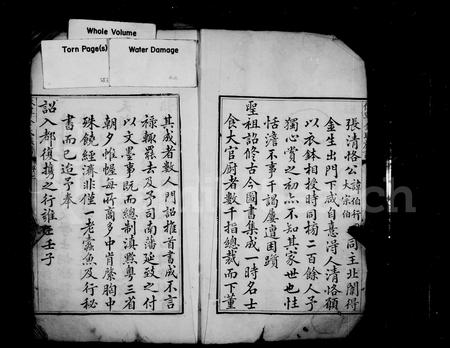 Whole Volume
Torn Page(s)
Water Damage
張清恪公諱伯行大宗伯同主北闈得
金生出門下咸自憙得人清恪顧
以衣鉢相授時同榜二百餘人予
獨心賞之初亦不知其家世也性
恬澹不事干謁屢遭困躓
聖祖詔修古今圖書集成一時名士
食大官廚者數千指總裁而下董
其成者數人門詔推首書成不言
祿輒罷去及予司南藩延致之付
以文墨事既而總制滇黔粵三省
朝夕帷幄每所商多中肯綮胸中
珠饒經濟非僅一老蠹魚及行秘
書而已迨予奉
詔入都復攜之行誰在壬子